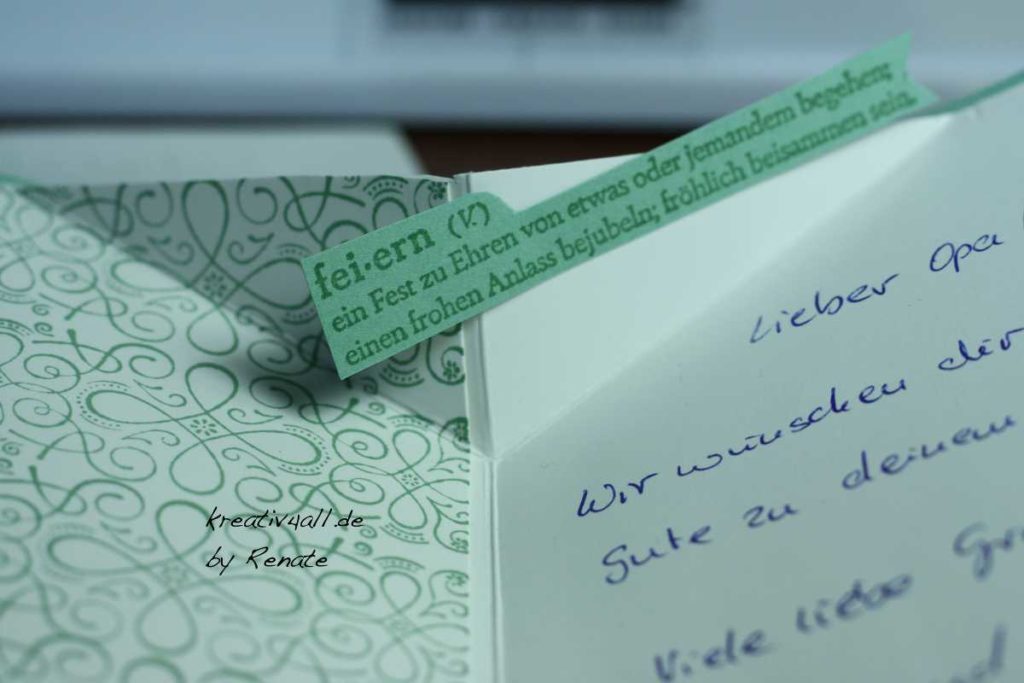 fei·ern (V.)
ein Fest zu Ehren von etwas oder jemandem begehen;
einen frohen Anlass bejubeln; fröhlich beisammen sein.
Lieber Opa
Wir wünschen dir
Gute zu deinem
Viele liebe
kreativ4all.de
by Renate